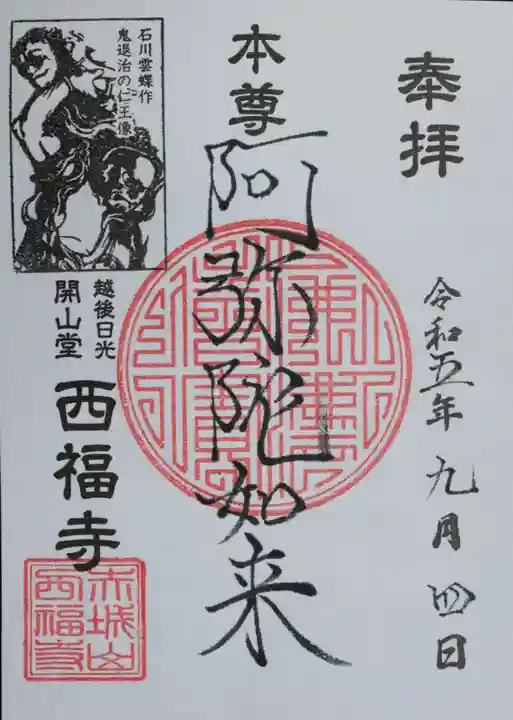 奉拝
令和五年 九月 四日
本尊
阿弥陀如来
石川雲蝶作
鬼退治の仁王像
越後日光
開山堂
西福寺
赤城山
西福寺